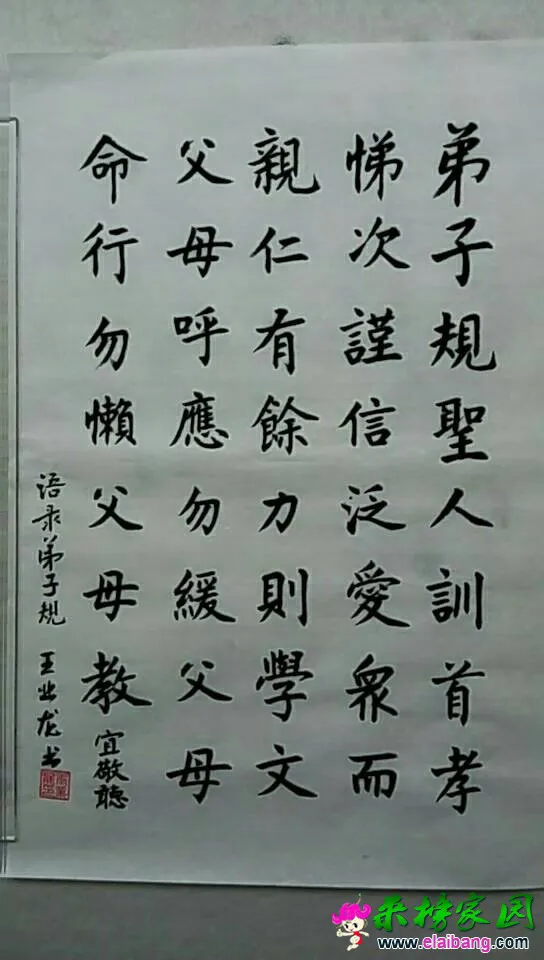 弟子規聖人訓首孝
悌次謹信泛愛衆而
親仁有餘力則學文
父母呼應勿緩父母
命行勿懶父母教
宜敬聽
语录弟子规 王业龙书
采榜家园
www.elaibang.com